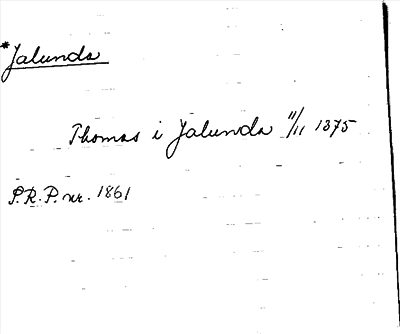 *Jalunda
Thomas i Jalunda 11/11 1375
S.R.P. nr. 1861